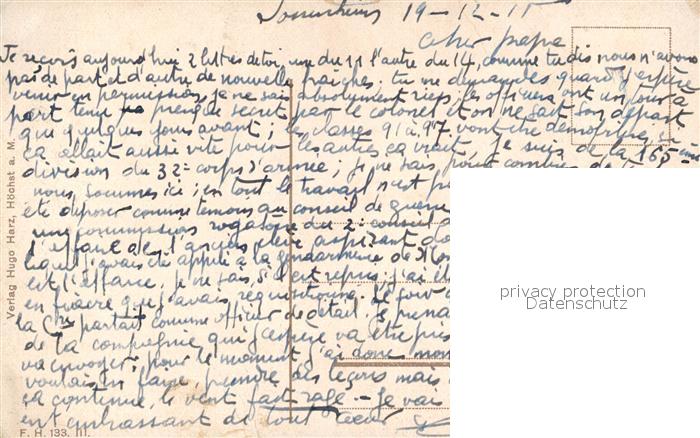 19-12-18
cher papa
Je reçois aujourd'hui 2 lettres de toi, une du 11 l'autre du 14, comme tu dis nous n'avons
pas de part et d'autre de nouvelles fraîches. tu me demandes quand j'espère
venir en permission, je ne sais absolument rien, les officiers ont un jour à
part tenu presque secret par le colonel et on ne sait son départ
que quelques jours avant ; les classes 91 à 97 vont être démobilisées, si
ça allait aussi vite pour les autres ça irait, je suis de la 165ème
division du 32e corps d'armée ; je ne sais pour combien de
nous sommes ici ; en tout le travail n'est
été déposer comme témoins au conseil de guerre
une commission rogatoire du 2e conseil
l'affaire de l'ancien élève aspirant
lequel j'avais été appelé à la gendarmerie de
est l'affaire, je ne sais, s'il est repris ; j'ai
en que j'avais réquisitionné. Le soir
la Cie partait comme officier de détail. Je
de la compagnie qui j'espère va être
va envoyer ; pour le moment j'ai donc mon
voulais en faire, prendre des leçons mais
ça continue, le vent fait rage. - Je vais
en t'embrassant de tout coeur
Verlag Hugo Harz, Höchst a. M.
F. H. 133. III.
privacy protection
Datenschutz